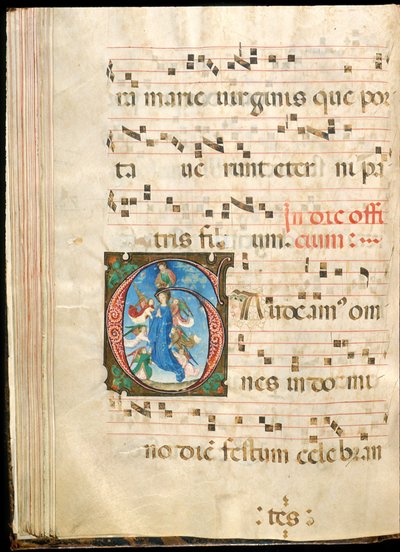 ta marie uirginis que por
ta ue runt eter ni pa
tris fili um. In die offi
cium:
Gaudeam⁹ om
nes in do mi
no diē festum celebran
tes